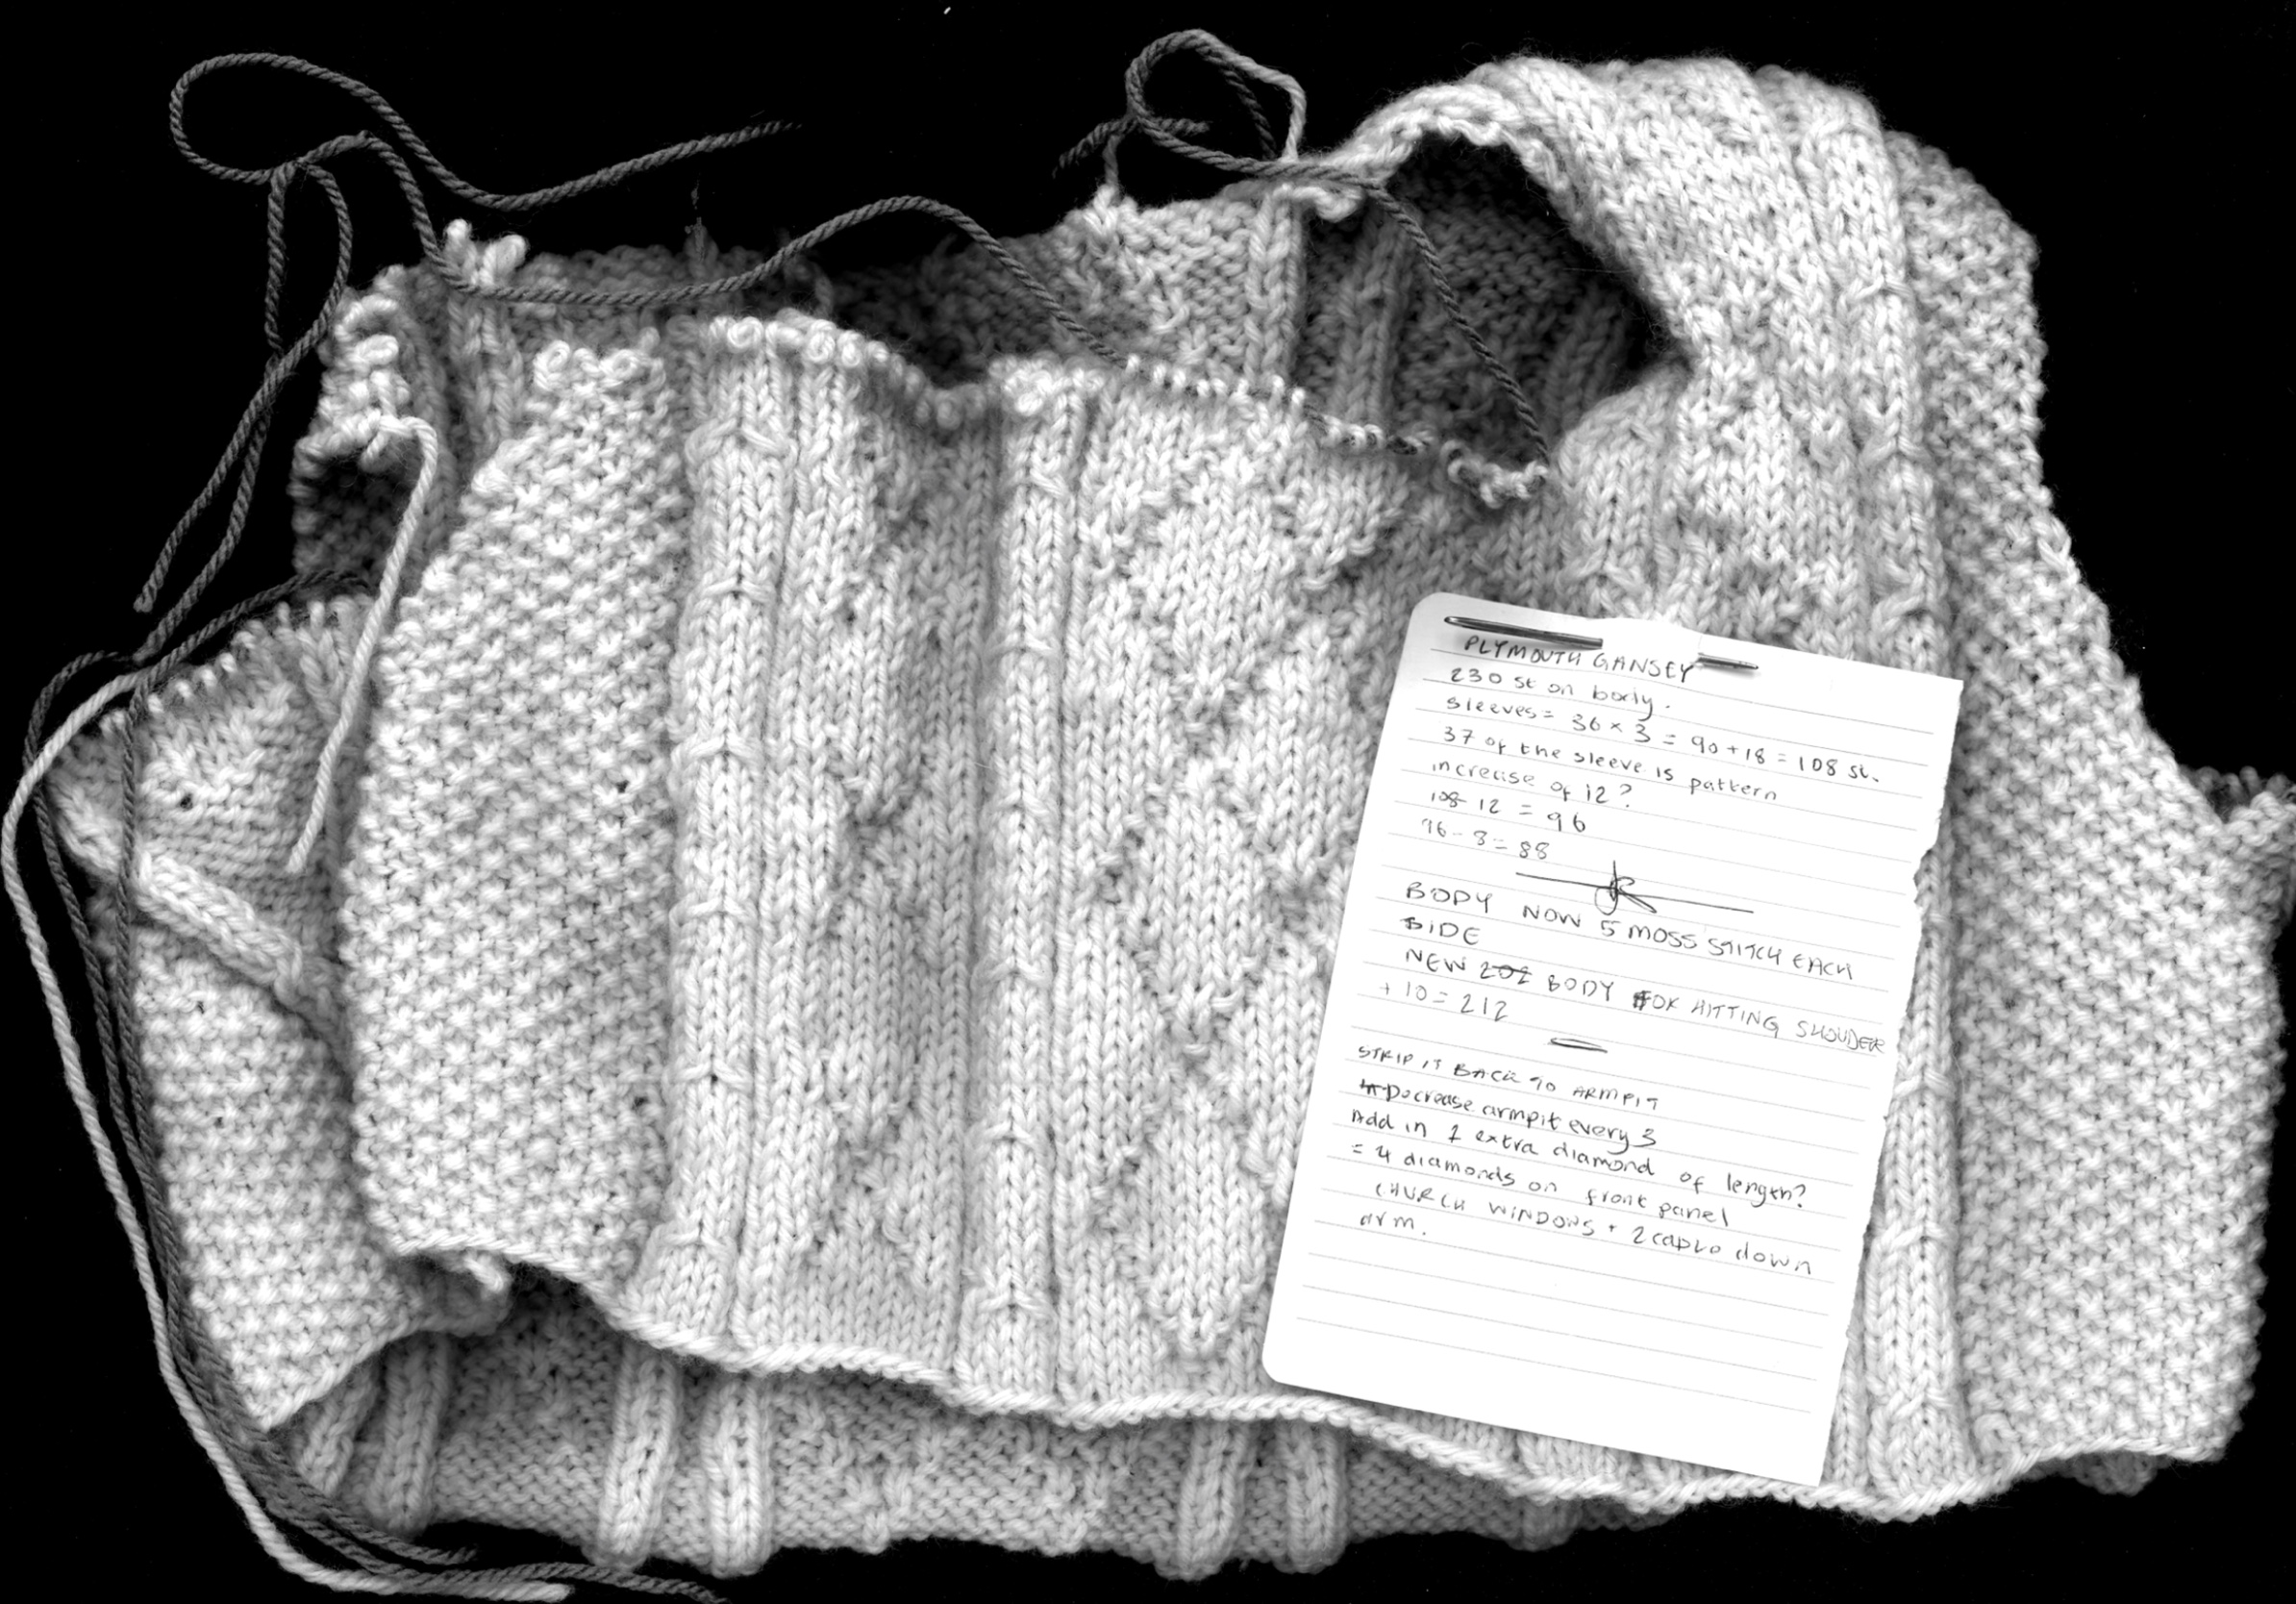 PLYMOUTH GANSEY
230 st on body.
Sleeves = 36 × 3 = 90 + 18 = 108 st.
37 of the sleeve is pattern
increase of 12?
108 - 12 = 96
96 - 8 = 88
BODY NOW 5 MOSS STITCH EACH
SIDE
NEW 202 BODY FOR HITTING SHOUDER
+ 10 = 212
STRIP IT BACK TO ARMPIT
Decrease armpit every 3
Add in 1 extra diamond of length?
= 4 diamonds on front panel
CHURCH WINDOWS + 2 down
arm.